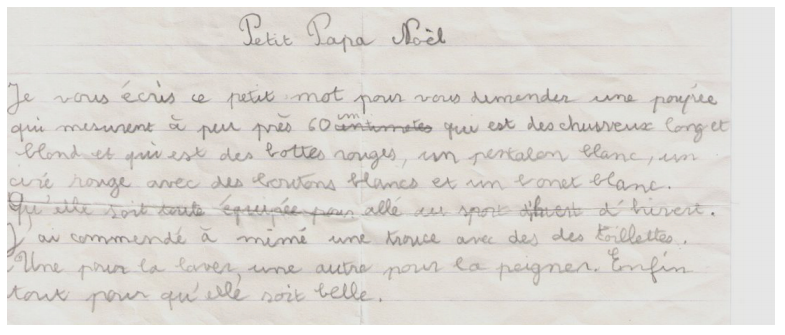 Petit Papa Noël
Je vous écris ce petit mot pour vous demender une poupée
qui mesurent à peu près 60 cm centimetes qui est des chuveux long et
blond et qui est des bottes rouges, un pentalon blanc, un
ciré rouge avec des boutons blancs et un bonet blanc.
Qu'elle soit toute équipée pour allé au sport d'hivert d'hivert.
J'ai commendé à mimé une trouce avec des des toillettes.
Une pour la laver, une autre pour la peigner. Enfin
tout pour qu'elle soit belle.